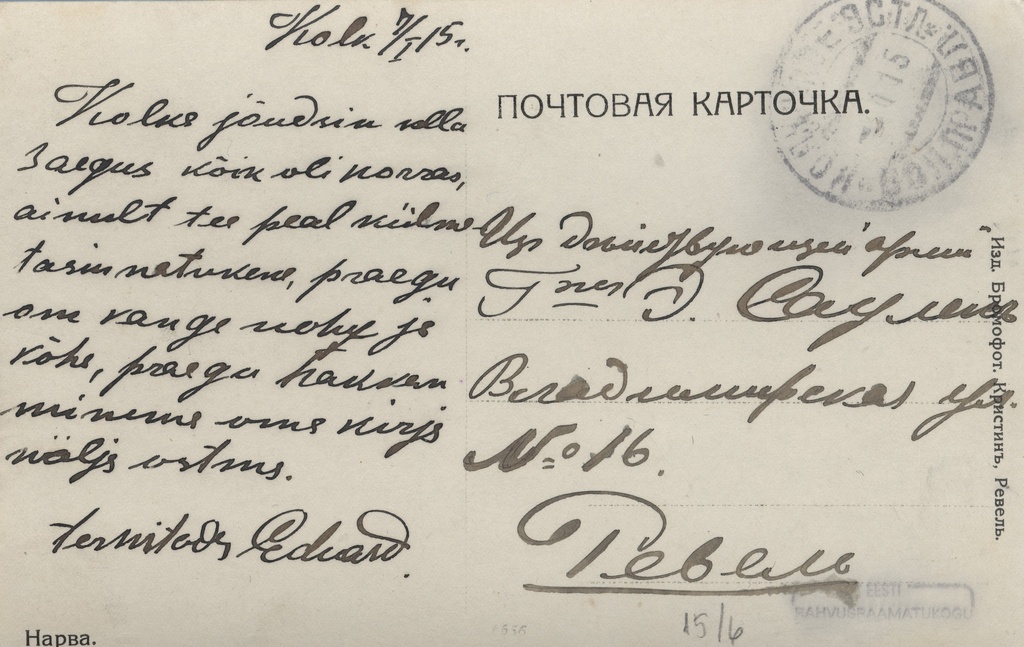 Kolk 7/I 15 г.
Kolke jõudsin kella
3 aegus kõik oli korras,
ainult tee peal külme
tasin natukene, praegu
om kange nohu ja
köhe, praegu hakkan
minema oma kirja
nälja ostma.
tervitades Eduard.
ПОЧТОВАЯ КАРТОЧКА.
Изъ действующей армiи
Г-ну Э. Саулепъ
Владимирская ул.
№ 16.
Ревель
Изд. Бромофот. Кристинъ, Ревель.
EESTI
RAHVUSRAAMATUKOGU
15/6
Нарва.